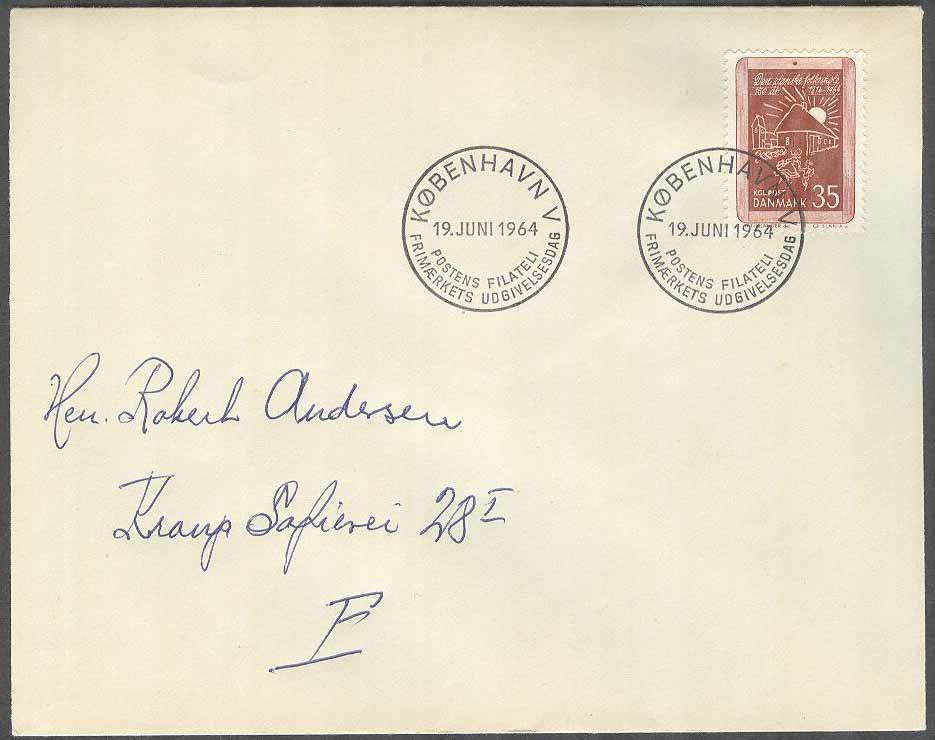 Den danske folkeskole
150 år 1814-1964
KGL. POST
DANMARK 35
KØBENHAVN V
19. JUNI 1964
POSTENS FILATELI
FRIMÆRKETS UDGIVELSESDAG
KØBENHAVN V
19. JUNI 1964
POSTENS FILATELI
FRIMÆRKETS UDGIVELSESDAG
Herr. Robert Andersen
Sofievei 28 I
F